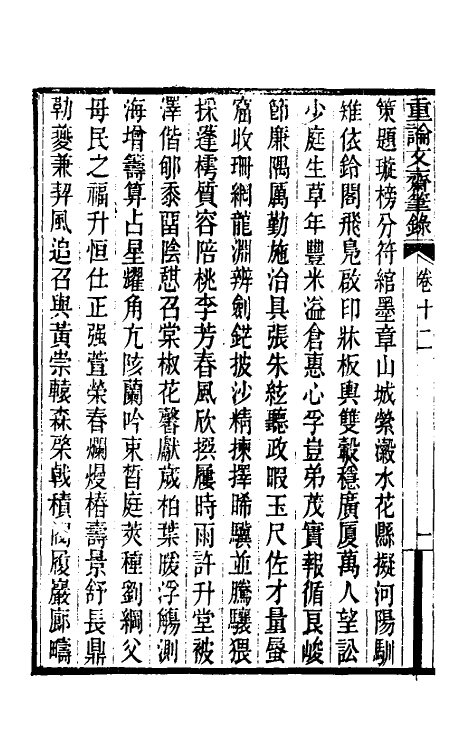 重論文齋筆錄 卷十二 一
策題璇榜分符綰墨章山城縈瀫水花縣擬河陽馴
雉依鈴閣飛凫啟印牀板輿雙轂穩廣厦萬人望訟
少庭生草年豐米溢倉惠心孚豈弟茂實報循良峻
節廉隅厲勤施治具張朱絃聽政暇玉尺佐才量蜃
窟收珊網龍淵辨劍鋩披沙精揀擇晞驥並騰驤猥
採蓬樗質容陪桃李芳春風欣撰屨時雨許升堂被
澤偕郇黍留陰憇召棠椒花馨獻歲柏葉腋浮觴測
海增籌算占星耀角亢陔蘭吟束皙庭莢種劉綱父
母民之福升恒仕正强萱榮春爛熳椿壽景舒長鼎
勒夔兼羿風追召與黃崇轅森棨戟積閥履巖廊疇